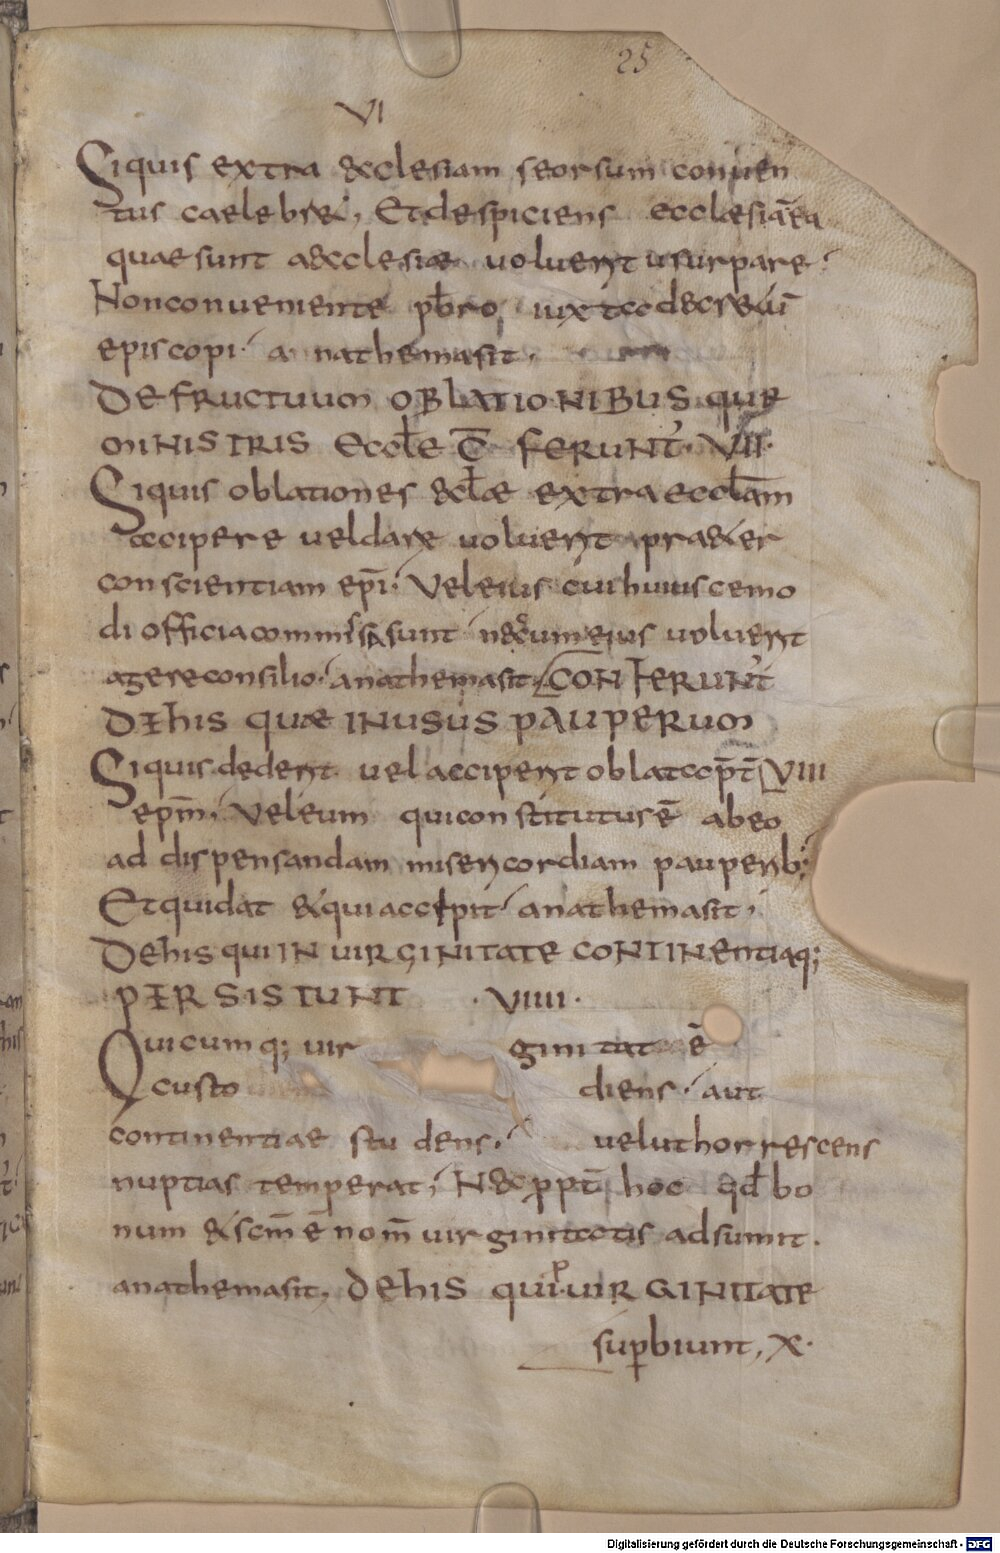 25
VI
Siquis extra &cclesiam seorsum conuen
tus caelebr&, Etdespiciens ecclæsia ea
quaesunt a&cclesiæ uoluerit usurpare
Nonconueniente pb̄ro iuxta decr&ū
episcopi anathemasit.
DE FRUCTUUM OBLATIONIBUS QUE
MINISTRIS Eccłe T̄ FERUNT̉ VII.
Siquis oblationes &cłæ extra eccłam
accipere ueldare uoluerit pra&er
conscientiam ep̄i. Veleius cui huiuscemo
di officia commissa sunt nec cum eius uoluerit
agereconsilio. anathemasit. CONFERUNT̉
DE his quæ INUSUS PAUPERUM
Siquis dederit uel acciperit oblata p̄t̄ VIII
ep̄m. Veleum quiconstitutus ē abeo
ad dispensandam misericordiam pauperib;
Etquidat &quiaccepit anathemasit,
DEhis qui IN VIRGINITATE CONTINENTIAQ;
PERSISTUNT .VIIII.
Quicumq; uir ginitatē
custo diens. aut
continentiae studens. uelut horrescens
nuptias temperat, N&c ppt̄ hoc qđ bo
num & sc̄m ē nom̄ uirginitatis adsumit.
anathemasit, DEhis qui p VIRGINITATE
supbiunt, X.
Digitalisierung gefördert durch die Deutsche Forschungsgemeinschaft - DFG